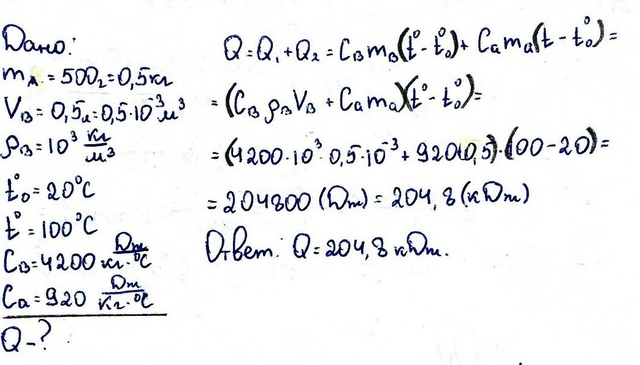 Дано:
m_A = 500г = 0,5 кг
V_В = 0,5 л = 0,5·10⁻³ м³
ρ_В = 10³ кг/м³
t₀° = 20°C
t° = 100°C
C_В = 4200 Дж/кг·°C
C_а = 920 Дж/кг·°C
Q - ?
Q = Q₁ + Q₂ = C_В m_В (t° - t₀°) + C_а m_а (t - t₀°) =
= (C_В ρ_В V_В + C_а m_а)(t° - t₀°) =
= (4200·10³·0,5·10⁻³ + 920·0,5)·(100-20) =
= 204800 (Дж) = 204,8 (кДж)
Ответ: Q = 204,8 кДж.